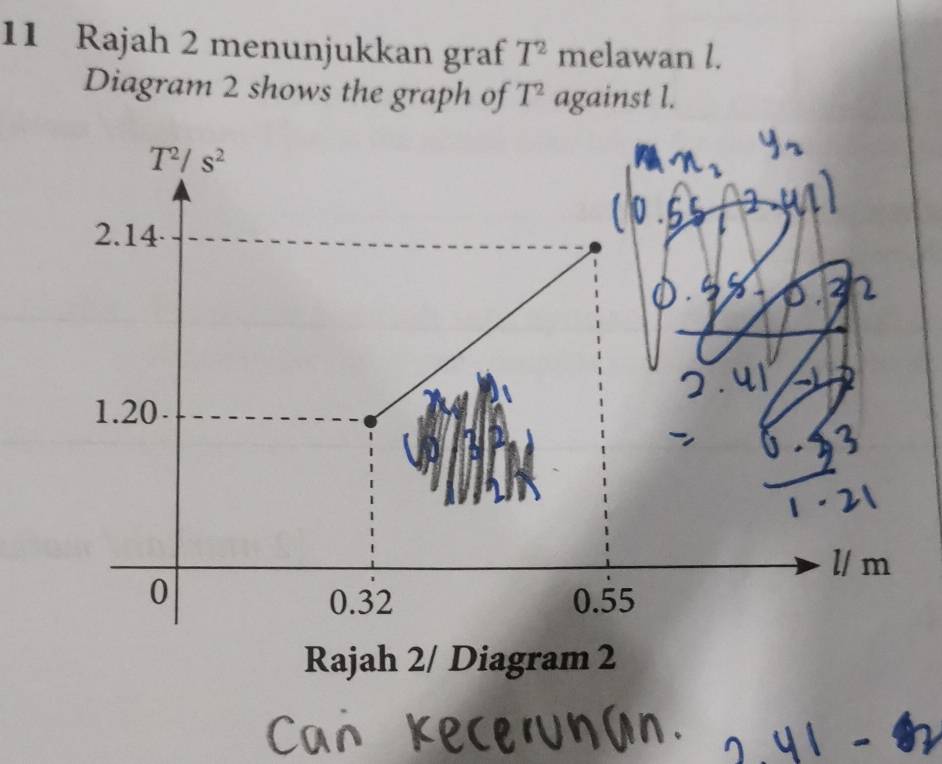 11 Rajah 2 menunjukkan graf T² melawan l.
Diagram 2 shows the graph of T² against l.
T²/ s²
2.14
1.20
0
0.32
0.55
l/ m
x₂ y₂
(0.55, 2.41)
0.55 - 0.32
2.41 -
=
1.21
x₁ y₁
Rajah 2/ Diagram 2
Cari kecerunan.
2.41 -